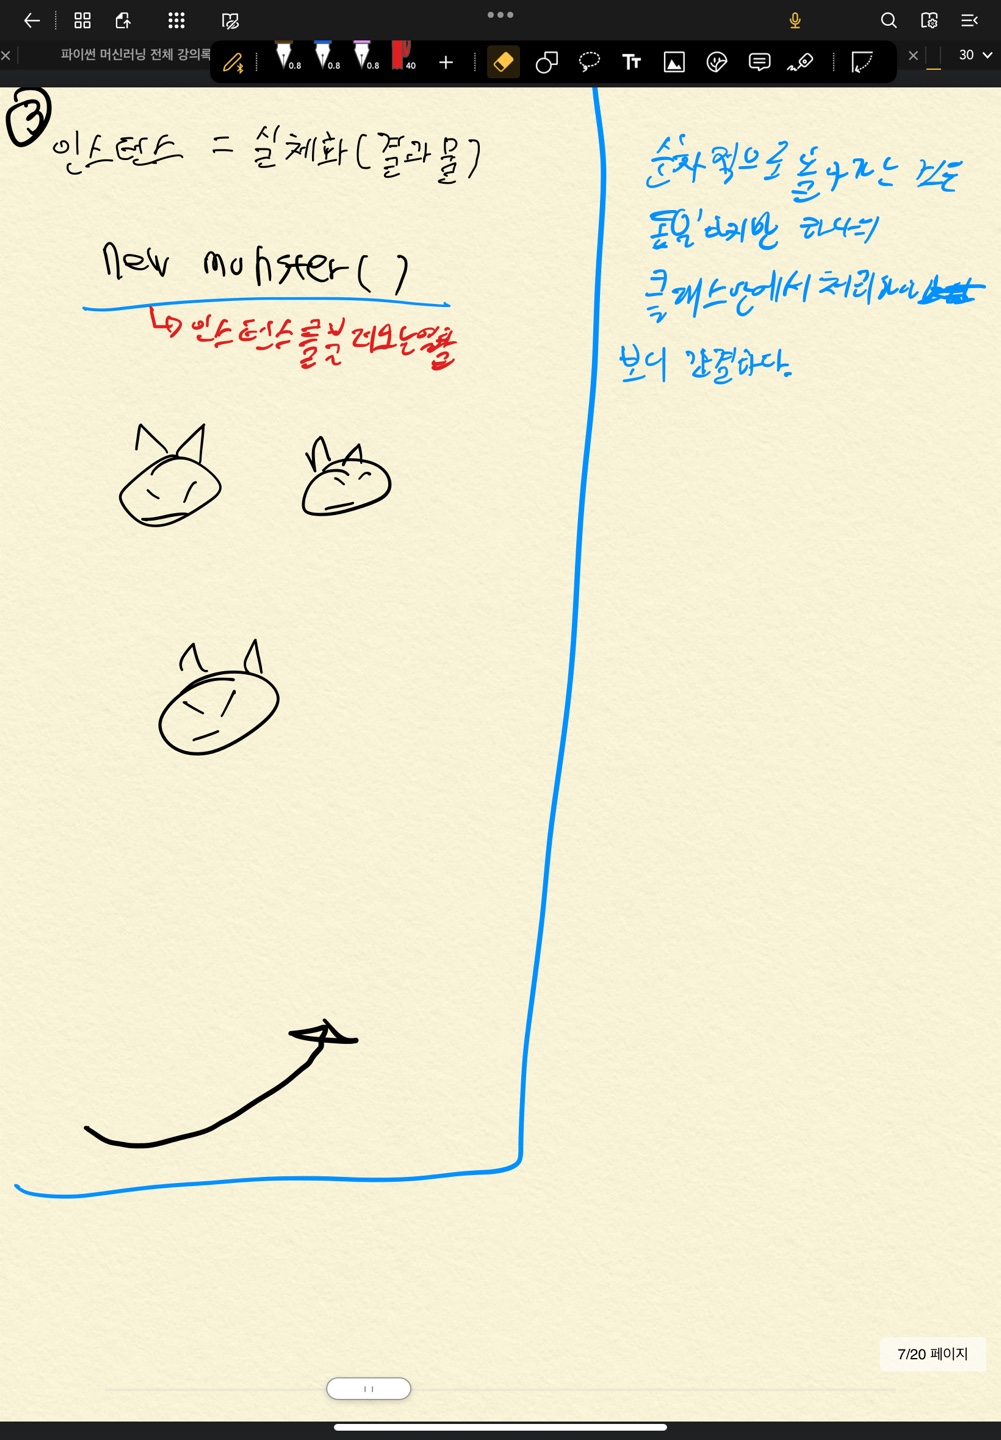 파이썬 머신러닝 전체 강의록
30
0.8
0.8
0.8
40
Tr
③
인스턴스 = 실체화(결과물)
new monster()
인스턴스를 불러오는 역할
순차적으로 돌아가는 것은
동일하지만 하나의
클래스안에서 처리하니
보다 간결하다.
7/20 페이지